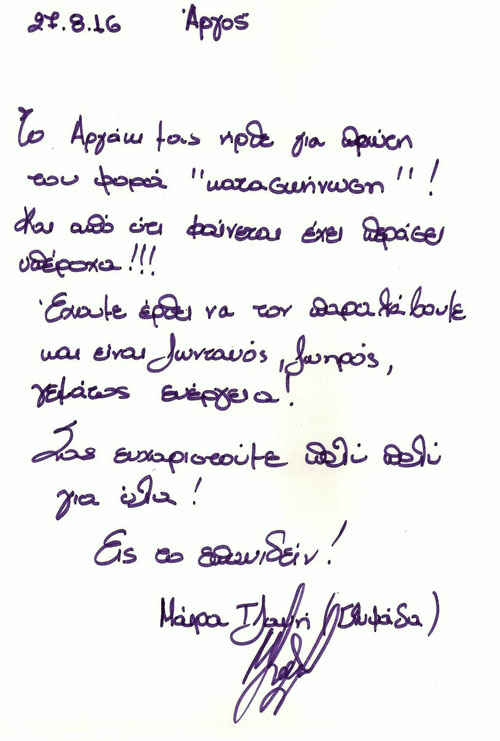 27.8.16 Άργος
Το Αργάκι μας ήρθε για πρώτη
του φορά "κατασκήνωση"!
Και από ότι φαίνεται έχει περάσει
υπέροχα!!!
Έχουμε έρθει να τον παραλάβουμε
και είναι ζωντανός, ζωηρός,
γεμάτος ενέργεια!
Σας ευχαριστούμε πολύ πολύ
για όλα!
Εις το επανιδείν!
Μάιρα (Γλυφάδα)